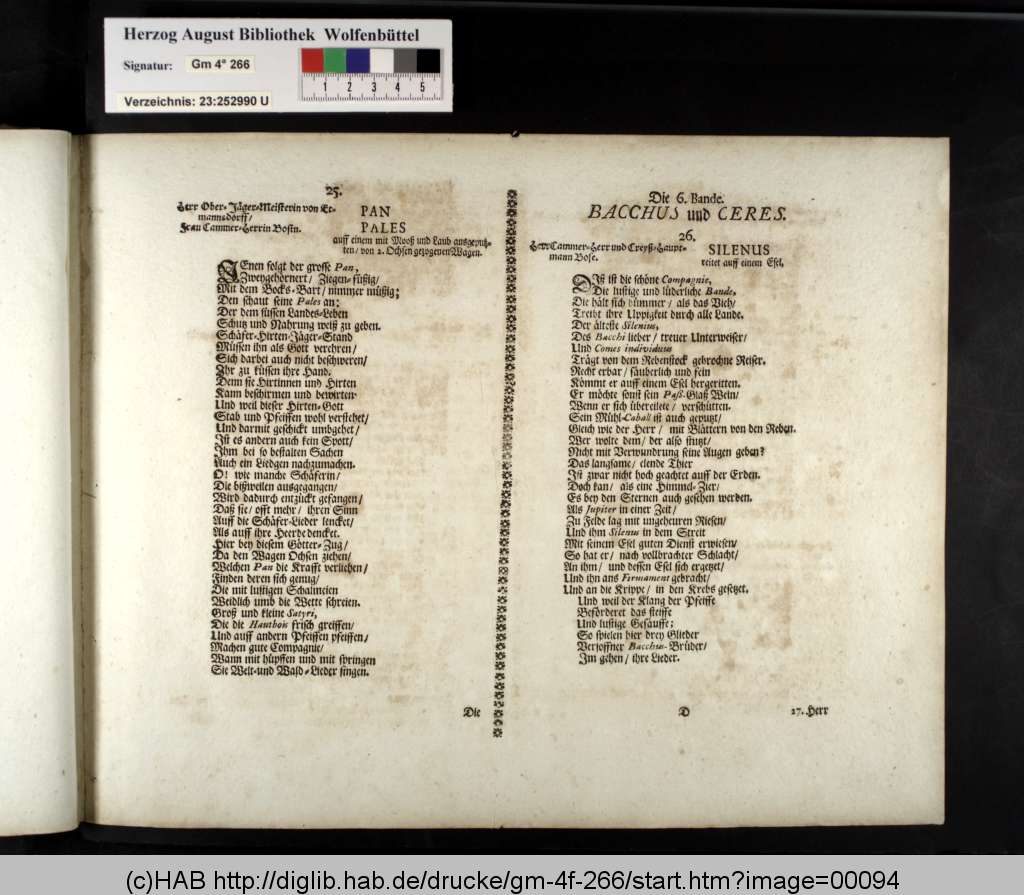 Herzog August Bibliothek Wolfenbüttel
Signatur: Gm 4° 266
Verzeichnis: 23:252990 U
1 2 3 4 5
25.
Herr Ober-Jäger-Meisterin von Er-
mannsdorff/
Frau Cammer-Herrin Bosin.
PAN
PALES
auff einem mit Mooß und Laub ausgeputz-
ten/ von 2. Ochsen gezogenen Wagen.
JEnen folgt der grosse Pan,
Zweygehörnert/ Ziegen-füßig/
Mit dem Bocks-Bart/ nimmer müßig;
Den schaut seine Pales an;
Der dem süssen Landes-Leben
Schutz und Nahrung weiß zu geben.
Schäfer-Hirten-Jäger-Stand
Müssen ihn als Gott verehren/
Sich darbei auch nicht beschweren/
Ihr zu küssen ihre Hand.
Denn sie Hirtinnen und Hirten
Kann beschirmen und bewirten.
Und weil dieser Hirten-Gott
Stab und Pfeiffen wohl verstehet/
Und darmit geschickt umbgehet/
Ist es andern auch kein Spott/
Ihm bei so bestalten Sachen
Auch ein Liedgen nachzumachen.
O! wie manche Schäferin/
Die bißweilen ausgegangen/
Wird dadurch entzückt gefangen/
Daß sie/ offt mehr/ ihren Sinn
Auff die Schäfer-Lieder lencket/
Als auff ihre Heerde dencket.
Hier bey diesem Götter-Zug/
Da den Wagen Ochsen ziehen/
Welchen Pan die Krafft verliehen/
Finden deren sich genug/
Die mit lustigen Schalmeien
Weidlich umb die Wette schreien.
Groß und kleine Satyri,
Die die Hautbois frisch greiffen/
Und auff andern Pfeiffen pfeiffen/
Machen gute Compagnie/
Wann mit hüpffen und mit springen
Sie Welt-und Wald-Lieder singen.
Die
Die 6. Bande.
BACCHUS und CERES.
26.
Herr Cammer-Herr und Creyß-Haupt-
mann Bose.
SILENUS
reitet auff einem Esel.
DIß ist die schöne Compagnie,
Die lustige und lüderliche Bande,
Die hält sich dümmer/ als das Vieh/
Treibt ihre Uppigkeit durch alle Lande.
Der älteste Silenius,
Des Bacchi lieber/ treuer Unterweiser/
Und Comes individuus
Trägt von dem Rebenstock gebrochne Reiser.
Recht erbar/ säuberlich und fein
Kömmt er auff einem Esel hergeritten.
Er möchte sonst sein Paß-Glaß Wein/
Wenn er sich übereilete/ verschütten.
Sein Mühl-Caball ist auch geputzt/
Gleich wie der Herr/ mit Blättern von den Reben.
Wer wolte dem/ der also stutzt/
Nicht mit Verwundrung seine Augen geben?
Das langsame/ elende Thier
Ist zwar nicht hoch geachtet auff der Erden.
Doch kan/ als eine Himmel-Zier/
Es bey den Sternen auch gesehen werden.
Als Jupiter in einer Zeit/
Zu Felde lag mit ungeheuren Riesen/
Und ihm Silenus in dem Streit
Mit seinem Esel guten Dienst erwiesen/
So hat er/ nach vollbrachter Schlacht/
An ihm/ und dessen Esel sich ergetzet/
Und ihn ans Firmament gebracht/
Und an die Krippe/ in den Krebs gesetzet.
Und weil der Klang der Pfeiffe
Befördert das steiffe
Und lustige Gesäuffe;
So spielen hier drey Glieder
Versoffner Bacchus-Brüder/
Im gehen/ ihre Lieder.
D
27. Herr
(c)HAB http://diglib.hab.de/drucke/gm-4f-266/start.htm?image=00094